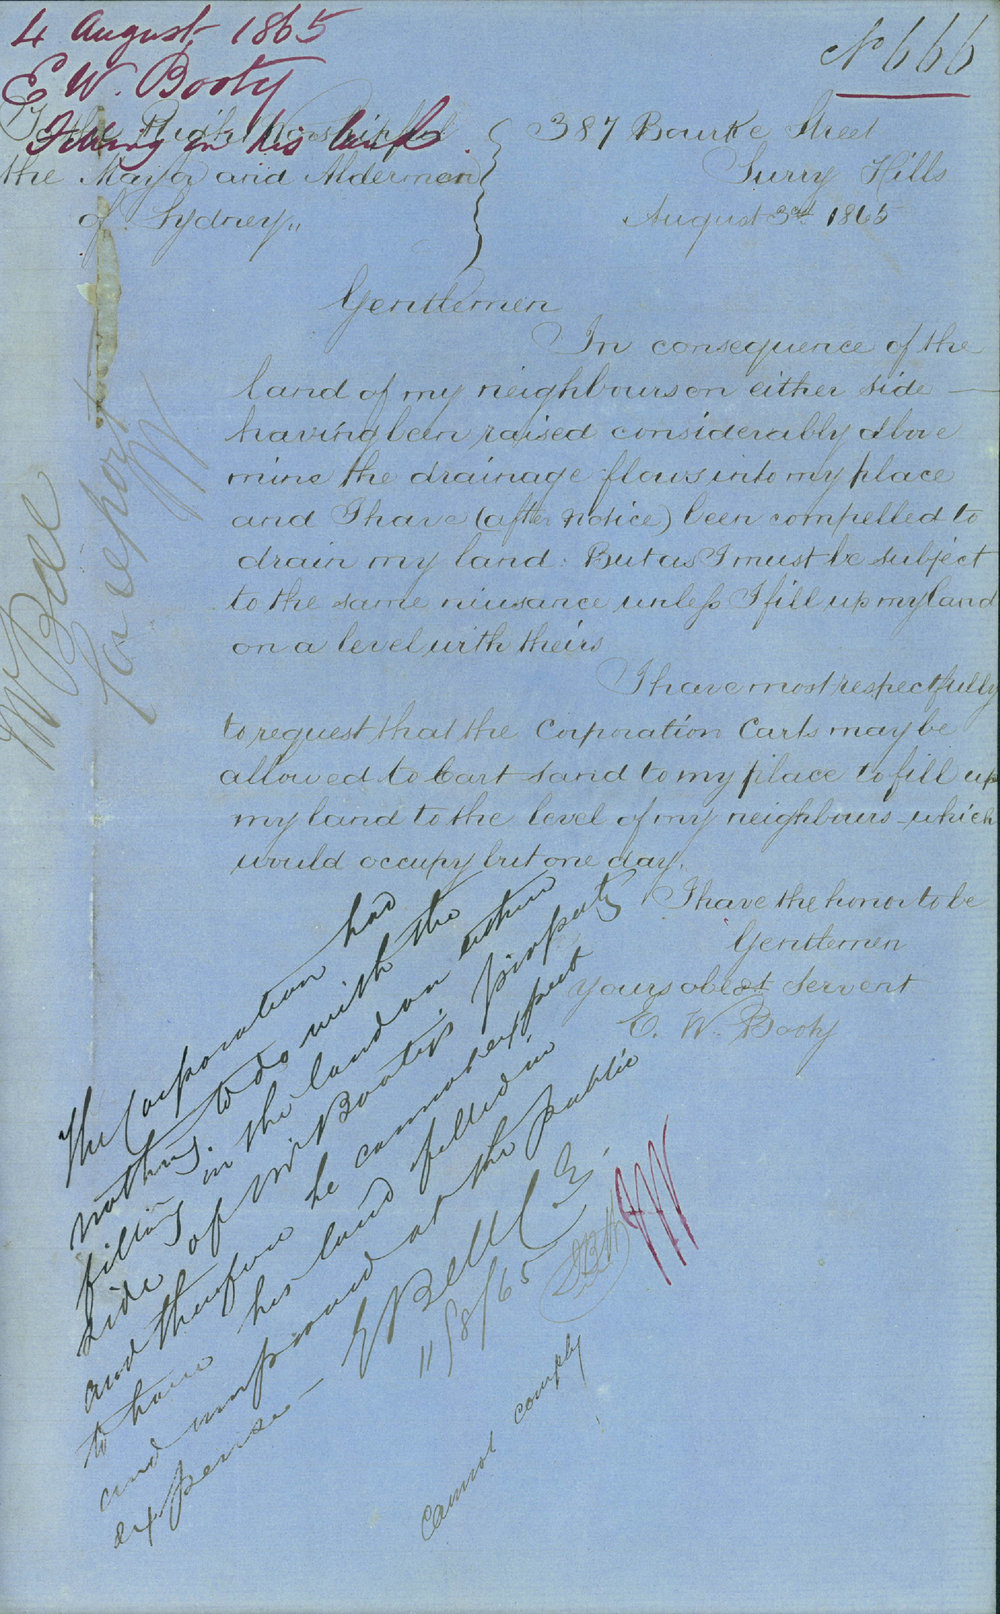 4 August 1865
E W. Booty
Filling in his land.
No 666
To the Right Worshipful
the Mayor and Aldermen
of Sydney,,
387 Bourke Street
Surry Hills
August 3rd 1865
Gentlemen
In consequence of the
land of my neighbours on either side
having been raised considerably above
mine the drainage flows into my place
and I have (after notice) been compelled to
drain my land: But as I must be subject
to the same niusance unless I fill up my land
on a level with theirs
I have most respectfully
to request that the Corporation Carts may be
allowed to Cart sand to my place to fill up
my land to the level of my neighbours which
would occupy but one day.
I have the honor to be
Gentlemen
Yours obedt Servent
E. W. Booty
Mr Bell
for report
The Corporation had
nothing to do with the
filling in the land on either
side of Mr Booty's property
and therefore he cannot expect
to have his land filled in
and improved at the public
expense —
E Bell C E.
11/8/65
Cannot comply